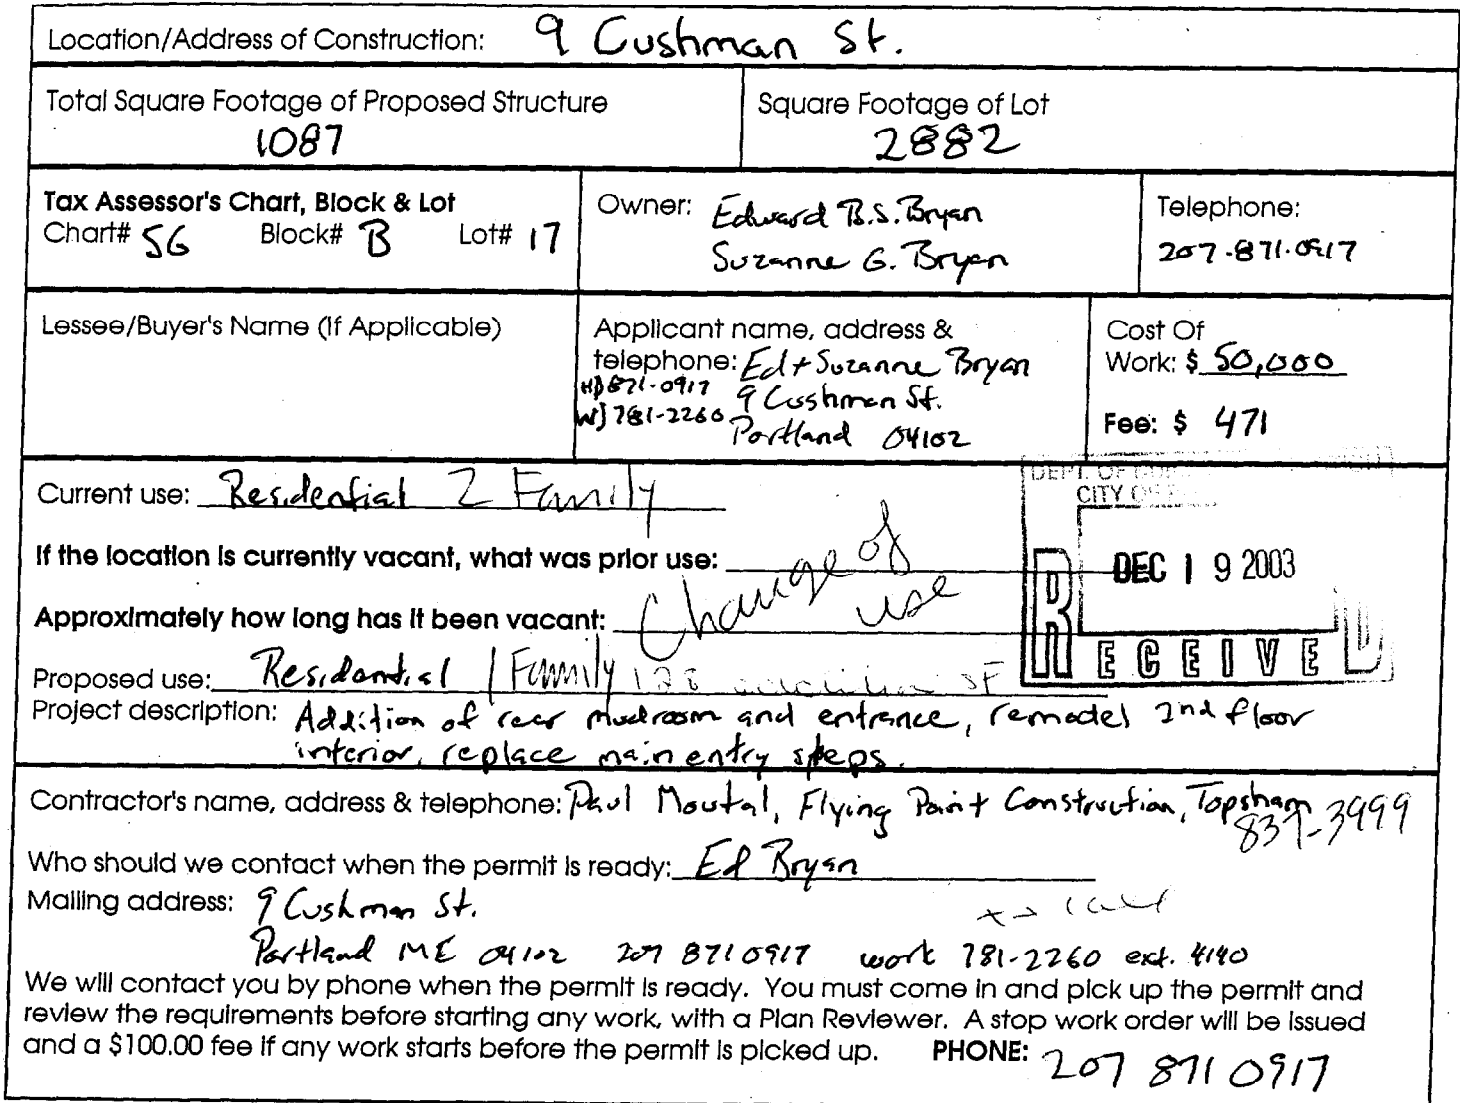 Location/Address of Construction: 9 Cushman St.
Total Square Footage of Proposed Structure
1087
Square Footage of Lot
2882
Tax Assessor's Chart, Block & Lot
Chart# 56 Block# B Lot# 17
Owner: Edward B.S. Bryan
Suzanne G. Bryan
Telephone:
207-871-0917
Lessee/Buyer's Name (If Applicable)
Applicant name, address &
telephone: Ed + Suzanne Bryan
H) 871-0917 9 Cushman St.
W) 781-2260 Portland 04102
Cost Of
Work: $ 50,000
Fee: $ 471
Current use: Residential 2 Family
If the location is currently vacant, what was prior use:
Approximately how long has it been vacant:
Change of
use
DEPT. OF
CITY OF
DEC 19 2003
RECEIVED
Proposed use: Residential 1 Family 128 SF
Project description: Addition of rear mudroom and entrance, remodel 2nd floor
interior, replace main entry steps.
Contractor's name, address & telephone: Paul Moutal, Flying Point Construction, Topsham
837-3999
Who should we contact when the permit is ready: Ed Bryan
Mailing address: 9 Cushman St.
Portland ME 04102 207 871 0917 work 781-2260 ext. 4140
We will contact you by phone when the permit is ready. You must come in and pick up the permit and
review the requirements before starting any work, with a Plan Reviewer. A stop work order will be issued
and a $100.00 fee if any work starts before the permit is picked up. PHONE: 207 871 0917